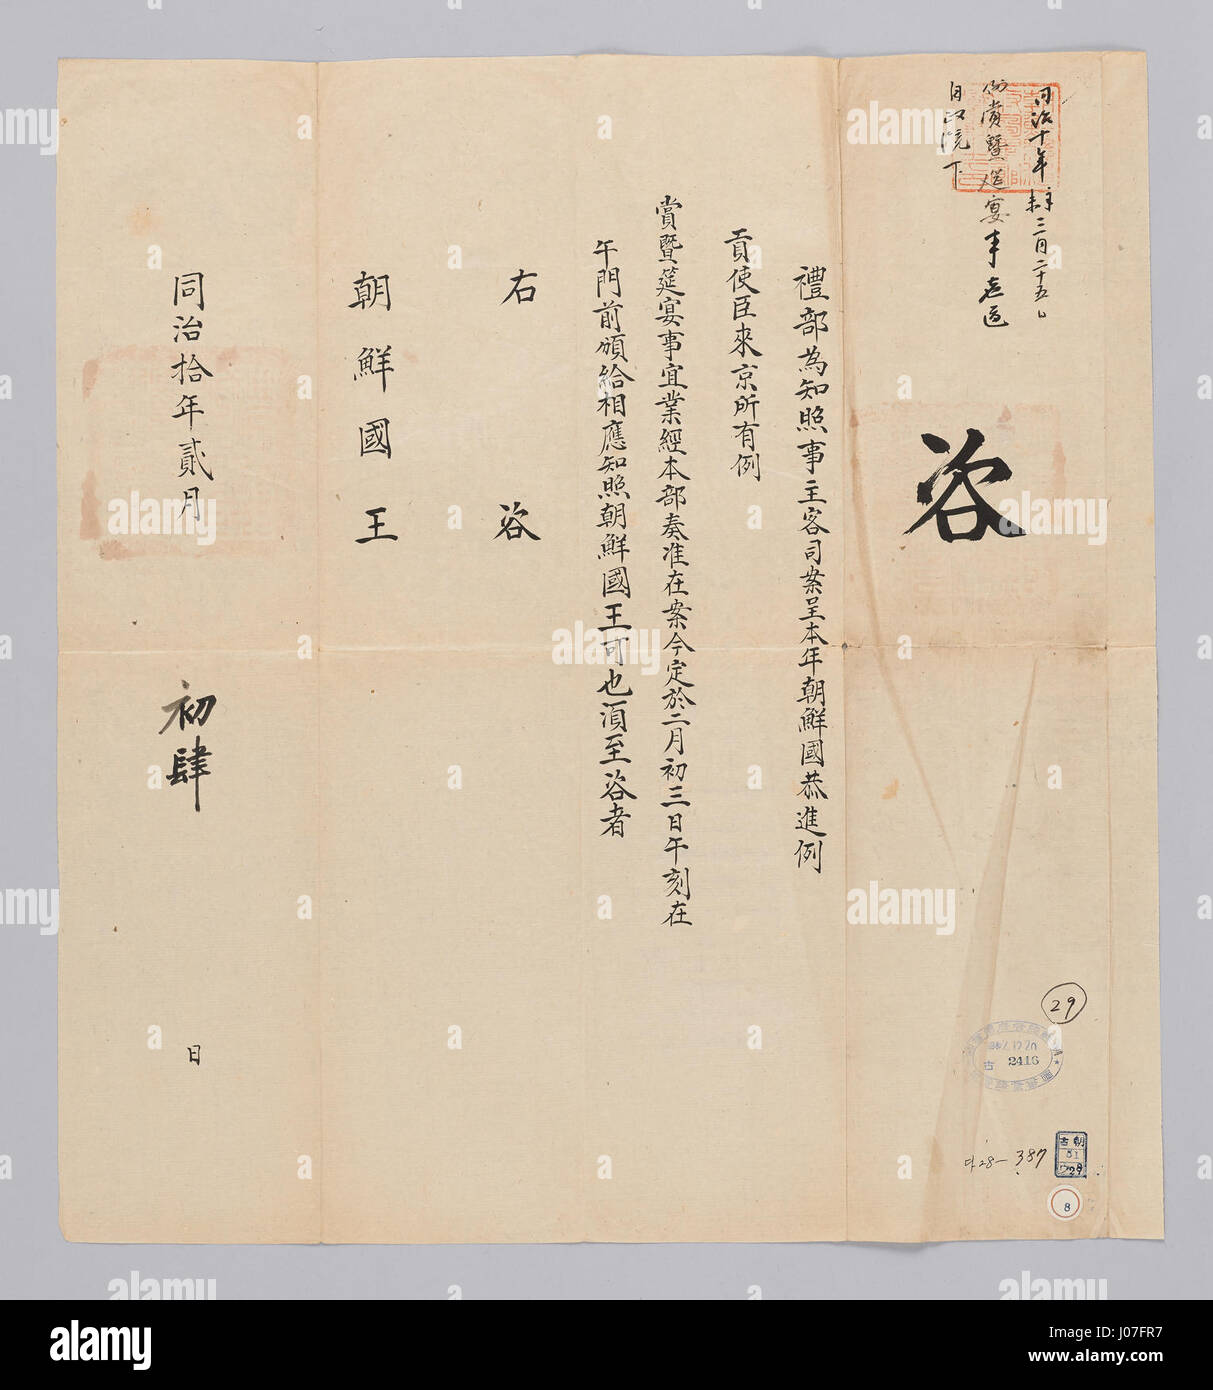 同治十年辛未三月二十五日
例賞暨筵宴事壱道
自政院下
咨
禮部為知照事主客司案呈本年朝鮮國恭進例
貢使臣來京所有例
賞暨筵宴事宜業經本部奏准在案今定於二月初三日午刻在
午門前頒給相應知照朝鮮國王可也湏至咨者
右咨
朝鮮國王
同治拾年貳月初肆日
29
2416
古
며28-387
朝古
51
29
8
alamy
a
alamy
Image ID: J07FR7
www.alamy.com